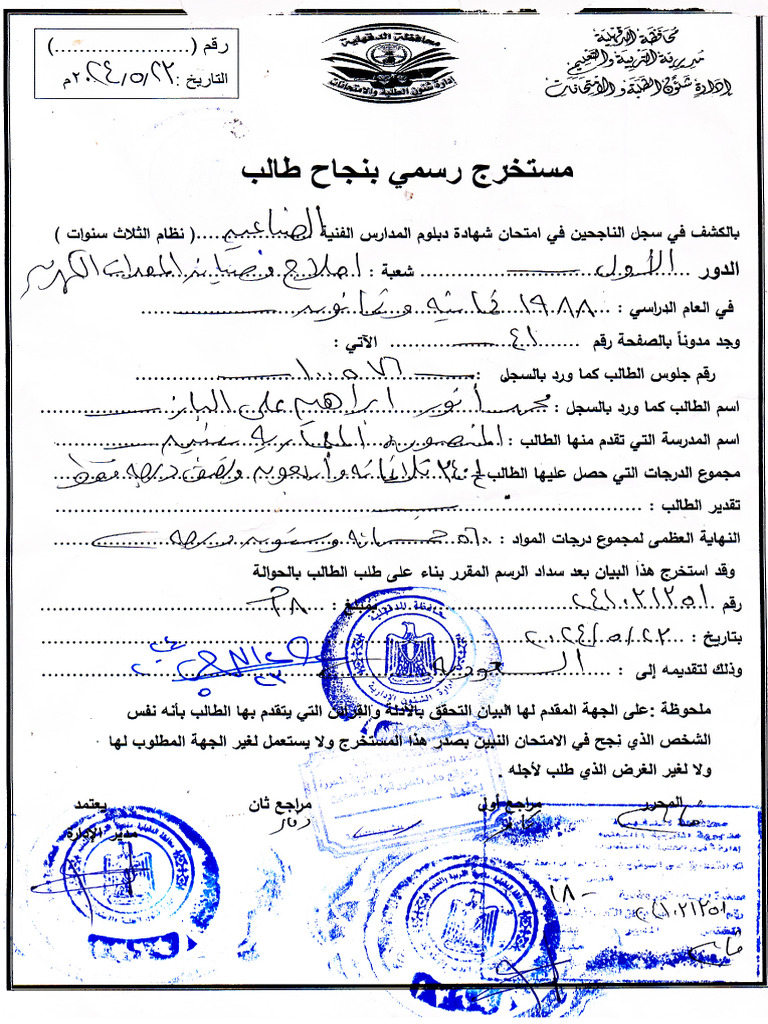 محافظة الدقهلية
مديرية التربية والتعليم
إدارة شئون الطلبة والامتحانات
محافظة الدقهلية
إدارة شئون الطلبة والامتحانات
رقم (....................)
التاريخ : ٢٠٢٤/٥/٢٢م
مستخرج رسمي بنجاح طالب
بالكشف في سجل الناجحين في امتحان شهادة دبلوم المدارس الفنية الصناعية ( نظام الثلاث سنوات )
الدور الأول شعبة : اصلاح وصيانة المعدات الكهربية
في العام الدراسي : ١٩٨٨ ثمانية وثمانون
وجد مدوناً بالصفحة رقم ٤١ الآتي :
رقم جلوس الطالب كما ورد بالسجل : ١٠٠٥٧٦
اسم الطالب كما ورد بالسجل : محمد أنور ابراهيم على الباز
اسم المدرسة التي تقدم منها الطالب : المنصورة المعمارية بنين
مجموع الدرجات التي حصل عليها الطالب ٣٤٠ ثلاثمائة وأربعون ونصف درجة فقط
تقدير الطالب :
النهاية العظمى لمجموع درجات المواد : ٥٦٠ خمسمائة وستون درجة
وقد استخرج هذا البيان بعد سداد الرسم المقرر بناء على طلب الطالب بالحوالة
رقم ٢٤١٠٢١٢٥١ بمبلغ :
بتاريخ : ٢٠٢٤/٥/٢٢
وذلك لتقديمه إلى : السعودية
ملحوظة : على الجهة المقدم لها البيان التحقق بالأدلة والقرائن التي يتقدم بها الطالب بأنه نفس
الشخص الذي نجح في الامتحان المبين بصدر هذا المستخرج ولا يستعمل لغير الجهة المطلوب لها
ولا لغير الغرض الذي طلب لأجله .
المحرر مراجع أول مراجع ثان يعتمد
مدير الإدارة
محافظة الدقهلية
إدارة الشئون الإدارية